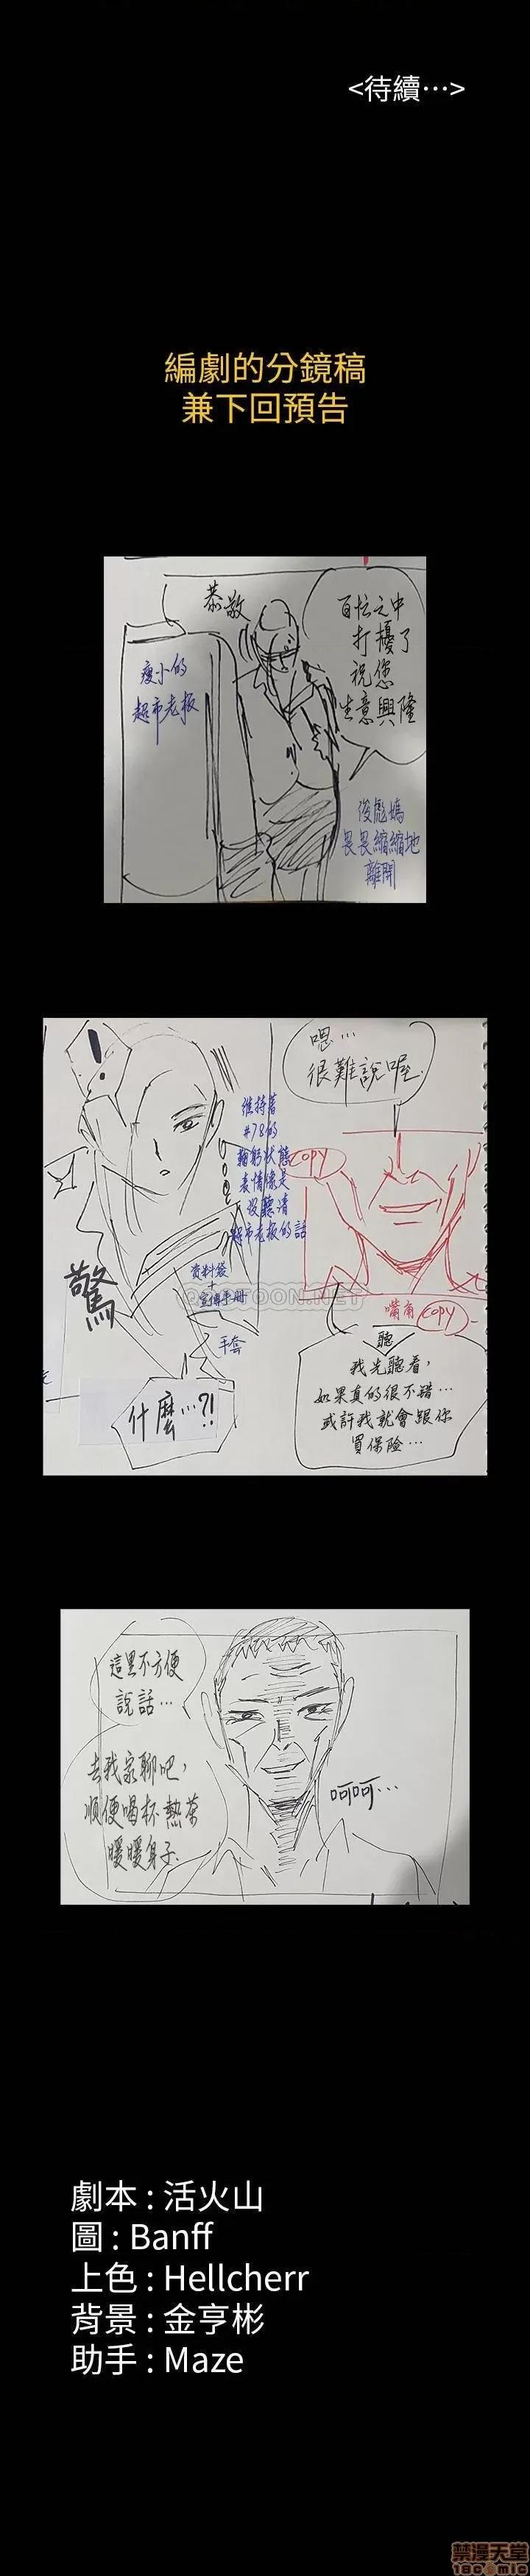 <待續…>
編劇的分鏡稿
兼下回預告
恭敬
百忙之中
打擾了
祝您
生意興隆
瘦小的
超市老板
俊彪媽
畏畏縮縮地
離開
嗯…
很難說喔.
!
維持著
#78的
鞠躬狀態
表情像是
沒聽清
超市老板的話
COPY
驚
资料袋
+
宣傳手册
手套
嘴角 COPY
什麼…?!
聽
我先聽看,
如果真的很不錯…
或許我就會跟你
買保險…
這里不方便
說話…
去我家聊吧,
順便喝杯熱茶
暖暖身子.
呵呵…
劇本 : 活火山
圖 : Banff
上色 : Hellcherr
背景 : 金亨彬
助手 : Maze
禁漫天堂